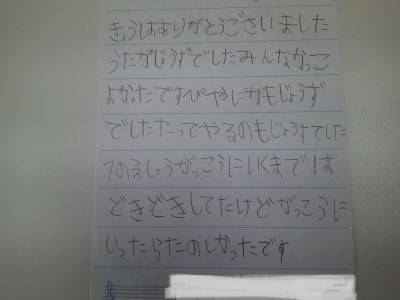 きょうはありがとうございました
うたがじょうずでしたみんなかっこ
よかったですぴやにかもじょうず
でしたたってやるのもじょうずでした
つのえしょうがっこうにいくまでは
どきどきしてたけどがっこうに
いったらたのしかったです